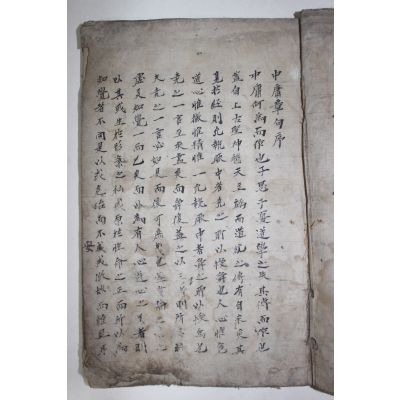 中庸章句序
中庸何爲而作也子思子憂道學之失其傳而作也
蓋自上古聖神繼天立極而道統之傳有自來矣其
見於經則允執厥中者堯之所以授舜也人心惟危
道心惟微惟精惟一允執厥中者舜之所以授禹也
堯之一言至矣盡矣而舜復益之以三言者則所以明
夫堯之一言必如是而後可庶幾也蓋嘗論之心之虛
靈知覺一而已矣而以爲有人心道心之異者則
以其或生於形氣之私或原於性命之正而所以爲
知覺者不同是以或危殆而不安或微妙而難見耳
安